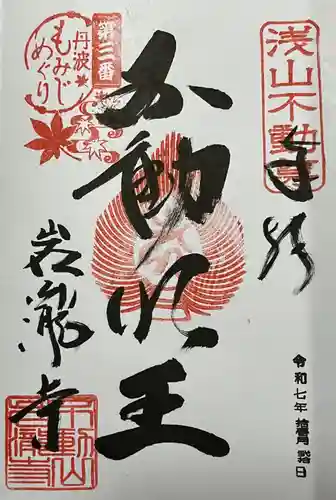 浅山不動尊
奉拝
第三番
丹波
もみじ
めぐり
不動明王
岩瀧寺
令和七年 拾壱月 弐拾日